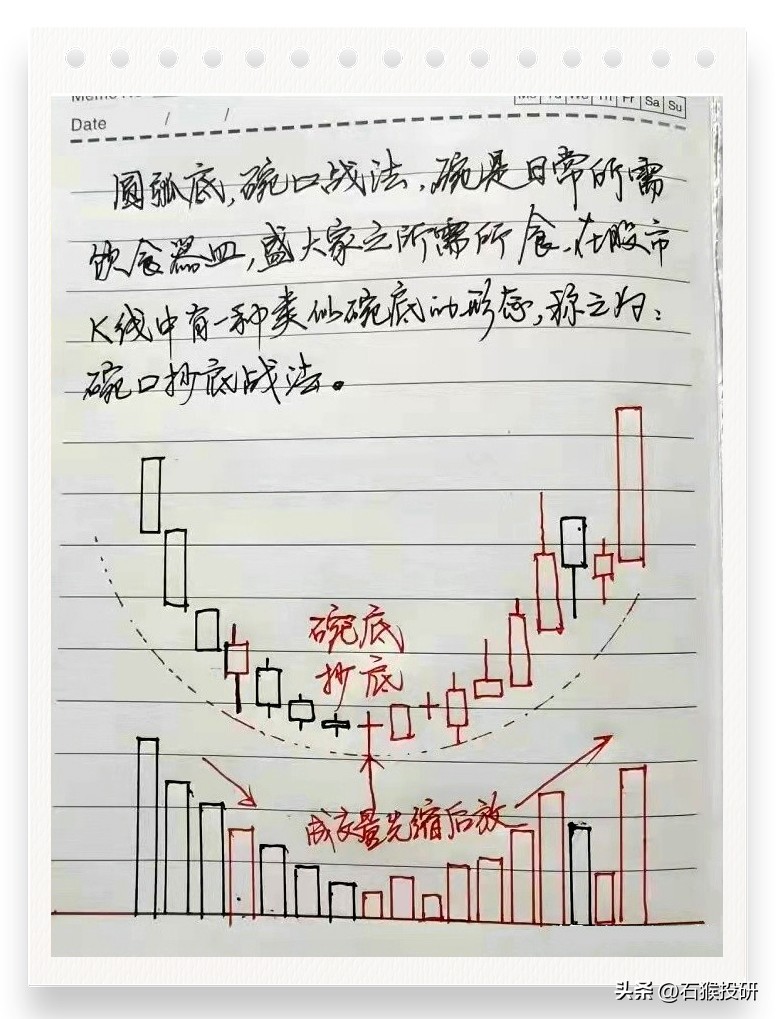 Date / /
Sa Su
圆弧底,碗口战法,碗是日常所需
饮食器皿,盛大家之所需所食、在股市
K线中有一种类似碗底的形态,称之为:
碗口抄底战法。
碗底
抄底
成交量先缩后放
头条 @石猴投研